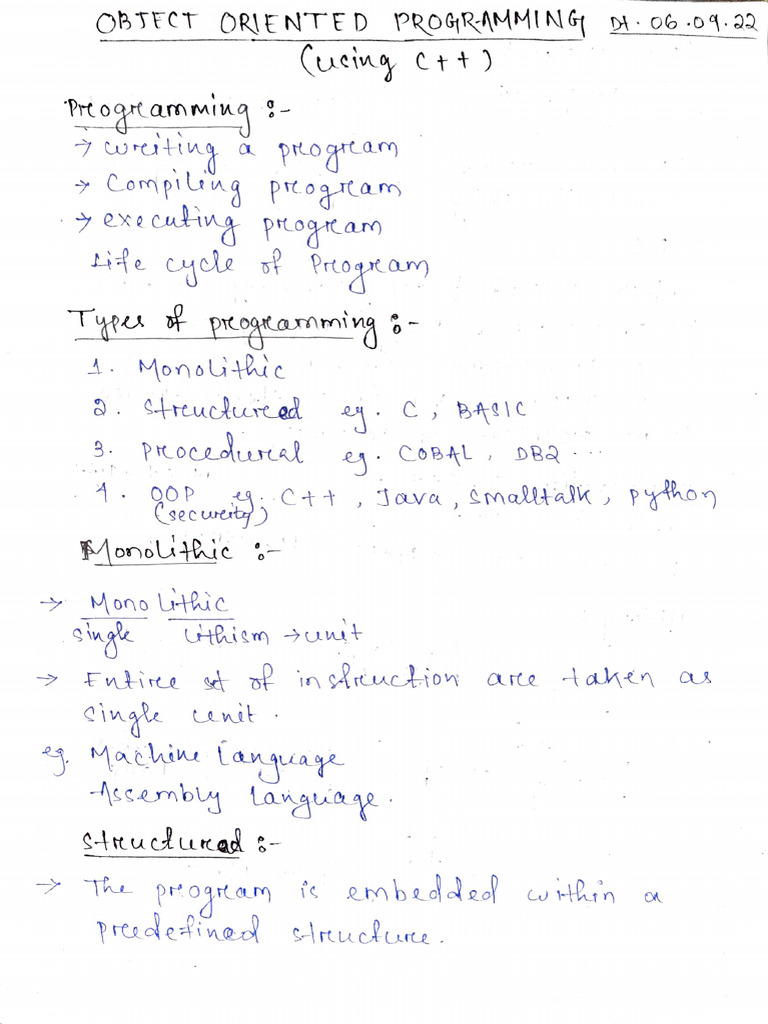 OBJECT ORIENTED PROGRAMMING Dt. 06.09.22
(using C++)
Programming :-
→ writing a program
→ Compiling program
→ executing program
Life cycle of Program
Types of programming :-
1. Monolithic
2. Structured eg. C, BASIC
3. procedural eg. COBAL, DB2 ...
4. OOP eg. C++, Java, Smalltalk, python
(security)
Monolithic :-
→ Mono lithic
single lithism → unit
→ Entire set of instruction are taken as
single unit.
eg. Machine language
Assembly language.
Structured :-
→ The program is embedded within a
predefined structure.